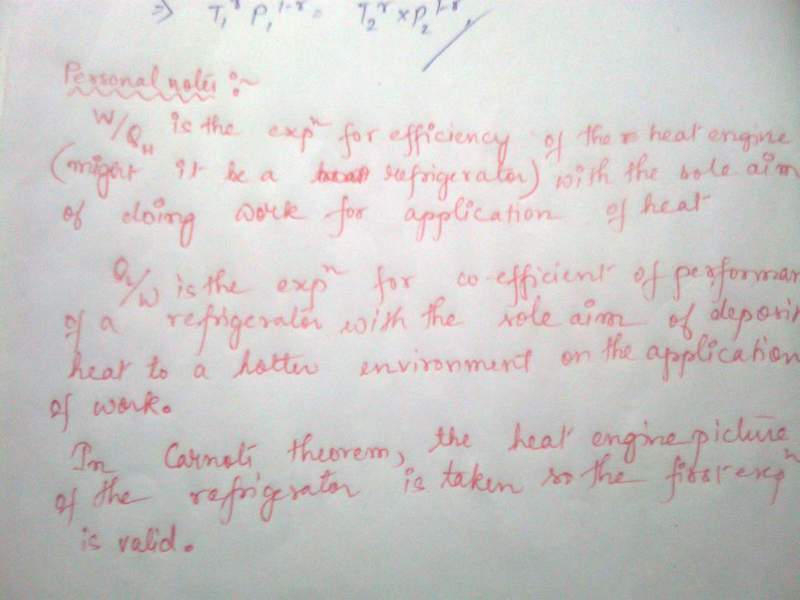 ⇒ T₁ʳ P₁¹⁻ʳ = T₂ʳ × P₂¹⁻ʳ
Personal notes :~
W/Q_H is the expⁿ for efficiency of the heat engine
(might it be a refrigerator) with the sole aim
of doing work for application of heat
Q/W is the expⁿ for co-efficient of performan
of a refrigerator with the sole aim of deposit
heat to a hotter environment on the application
of work.
In Carnot's theorem, the heat engine picture
of the refrigerator is taken so the first expⁿ
is valid.